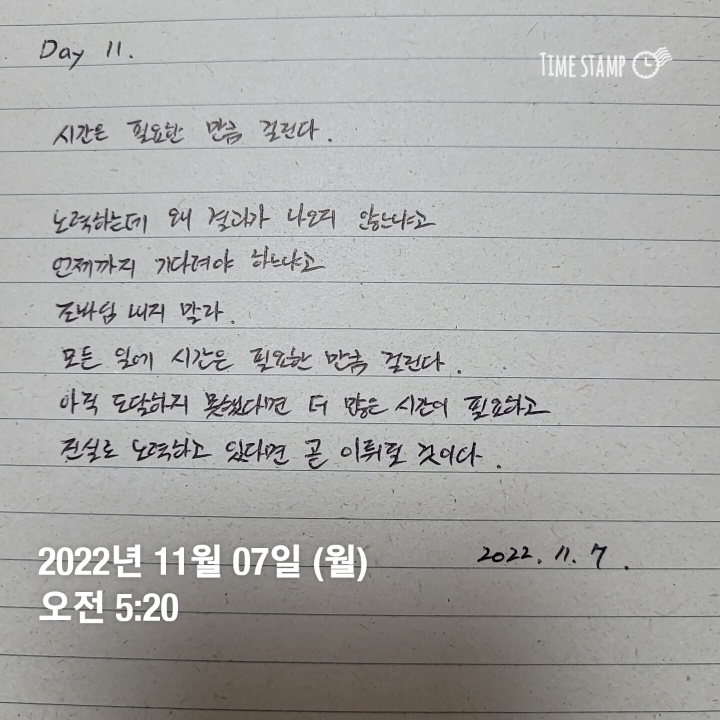 Day 11.
TIME STAMP
시간은 필요한 만큼 걸린다.
노력하는데 왜 결과가 나오지 않느냐고
언제까지 기다려야 하느냐고
조바심 내지 말라.
모든 일에 시간은 필요한 만큼 걸린다.
아직 도달하지 못했다면 더 많은 시간이 필요하고
진실로 노력하고 있다면 곧 이뤄질 것이다.
2022. 11. 7.
2022년 11월 07일 (월)
오전 5:20